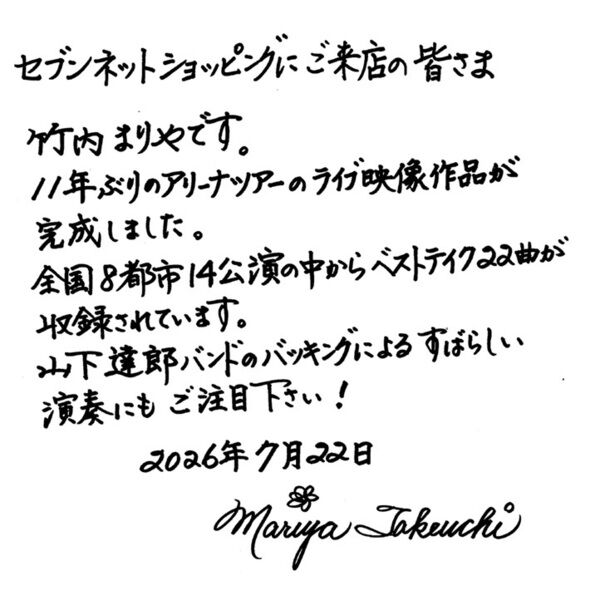 セブンネットショッピングにご来店の皆さま
竹内まりやです。
11年ぶりのアリーナツアーのライブ映像作品が
完成しました。
全国8都市14公演の中からベストテイク22曲が
収録されています。
山下達郎バンドのバッキングによるすばらしい
演奏にもご注目下さい!
2026年7月22日
Mariya Takeuchi